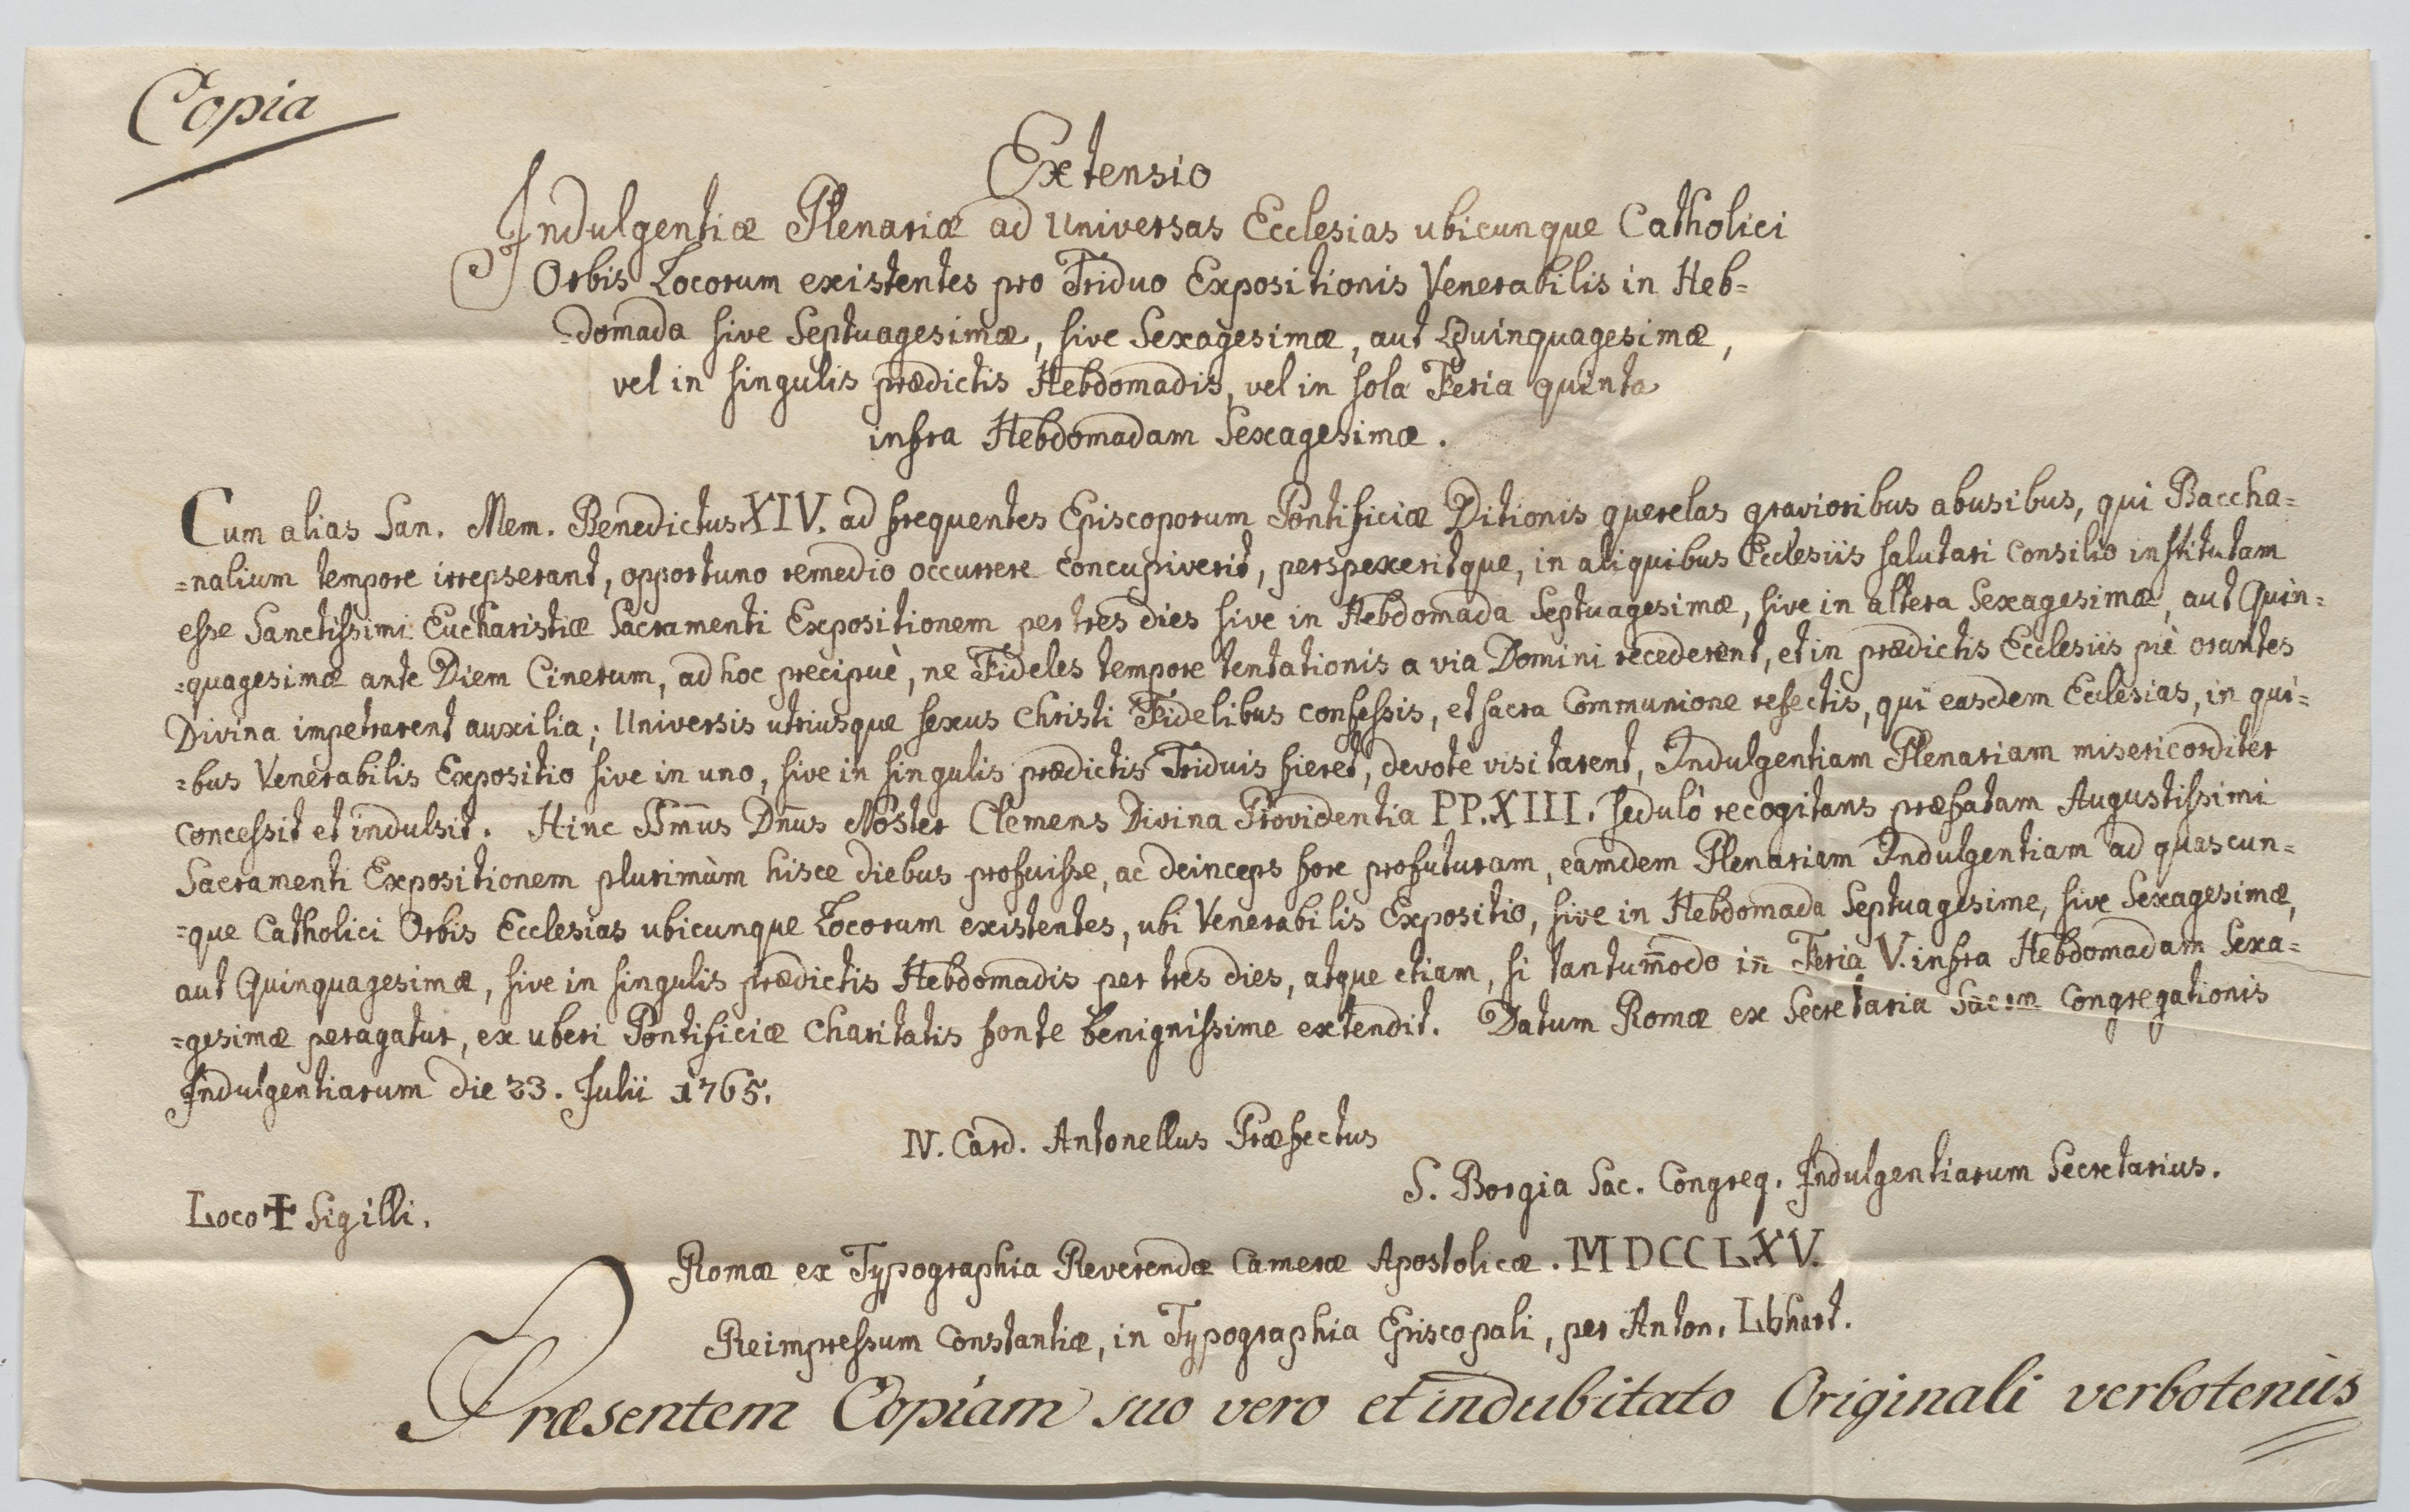 Copia
Extensio
Indulgentiæ Plenariæ ad Universas Ecclesias ubicunque Catholici
Orbis Locorum existentes pro Triduo Expositionis Venerabilis in Heb=
=domada sive Septuagesimæ, sive Sexagesimæ, aut Quinquagesimæ,
vel in singulis prædictis Hebdomadis, vel in sola Feria quinta
infra Hebdomadam Sexagesimæ.
Cum alias San. Mem. Benedictus XIV. ad frequentes Episcoporum Pontificiæ Ditionis querelas gravioribus abusibus, qui Baccha=
=nalium tempore irrepserant, opportuno remedio occurrere concupiverit, perspexeritque, in aliquibus Ecclesiis salutari consilio institutam
esse Sanctissimi Eucharistiæ Sacramenti Expositionem per tres dies sive in Hebdomada Septuagesimæ, sive in altera Sexagesimæ, aut Quin=
=quagesimæ ante Diem Cinerum, ad hoc precipuè, ne Fideles tempore tentationis a via Domini recederent, et in prædictis Ecclesiis piè orantes
Divina impetrarent auxilia; Universis utriusque sexus Christi Fidelibus confessis, et sacra Communione refectis, qui easdem Ecclesias, in qui=
=bus Venerabilis Expositio sive in uno, sive in singulis prædictis Triduis fieret, devotè visitarent, Indulgentiam Plenariam misericorditer
concessit et indulsit. Hinc SSm̅us Dn̅us Noster Clemens Divina Providentia PP. XIII. sedulò recogitans præfatam Augustissimi
Sacramenti Expositionem plurimùm hisce diebus profuisse, ac deinceps fore profuturam, eamdem Plenariam Indulgentiam ad quascun=
=que Catholici Orbis Ecclesias ubicunque Locorum existentes, ubi Venerabilis Expositio, sive in Hebdomada Septuagesime, sive Sexagesimæ,
aut Quinquagesimæ, sive in singulis prædictis Hebdomadis per tres dies, atque etiam, si tantum̅odo in Feria V. infra Hebdomadam Sexa=
=gesimæ peragatur, ex uberi Pontificiæ Charitatis fonte benignissime extendit. Datum Romæ ex Secretaria Sacræ Congregationis
Indulgentiarum die 23. Julii 1765.
N. Card. Antonellus Præfectus
S. Borgia Sac. Congreg. Indulgentiarum Secretarius.
Loco ✝ Sigilli.
Romæ ex Typographia Reverendæ Cameræ Apostolicæ. MDCCLXV.
Reimpressum Constantiæ, in Typographia Episcopali, per Anton. Labhart.
Præsentem Copiam suo vero et indubitato Originali verbotenùs